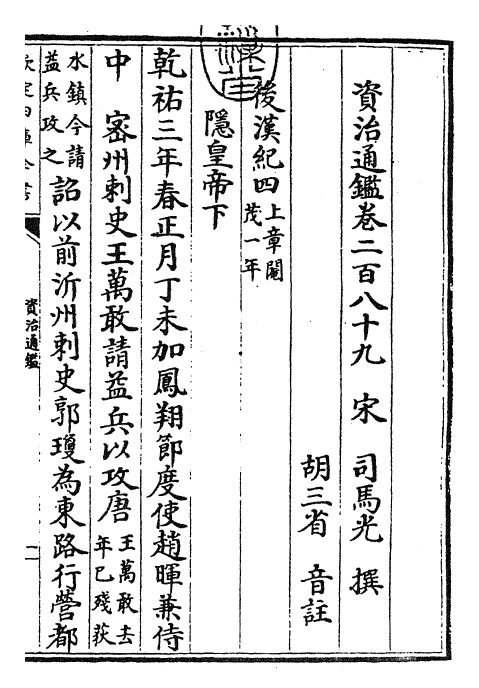 資治通鑑卷二百八十九 宋 司馬光 撰
胡三省 音註
後漢紀四 上章閹茂一年
隱皇帝下
乾祐三年春正月丁未加鳳翔節度使趙暉兼侍
中 宻州刺史王萬敢請益兵以攻唐 王萬敢去年已殘荻
水鎮今請益兵攻之 詔以前沂州刺史郭瓊為東路行營都
資治通鑑